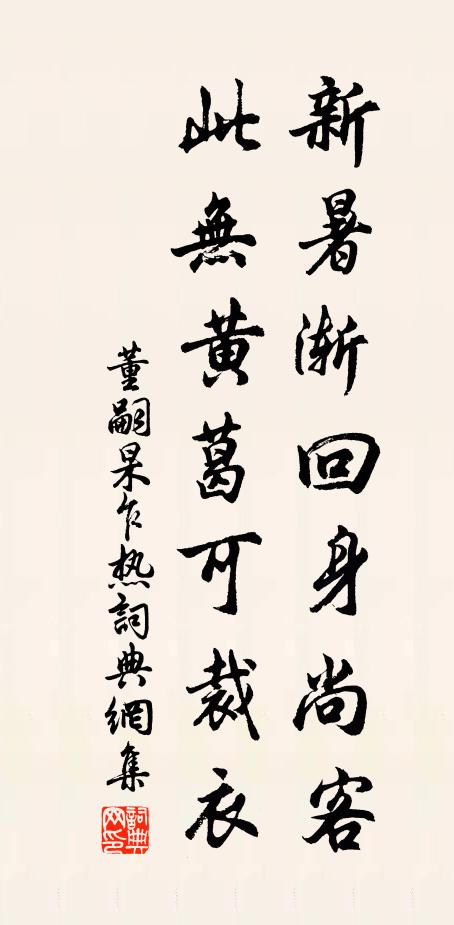 新暑漸回身尚客
此無黄葛可裁衣
董嗣杲乍热詞典網集
詞典网印